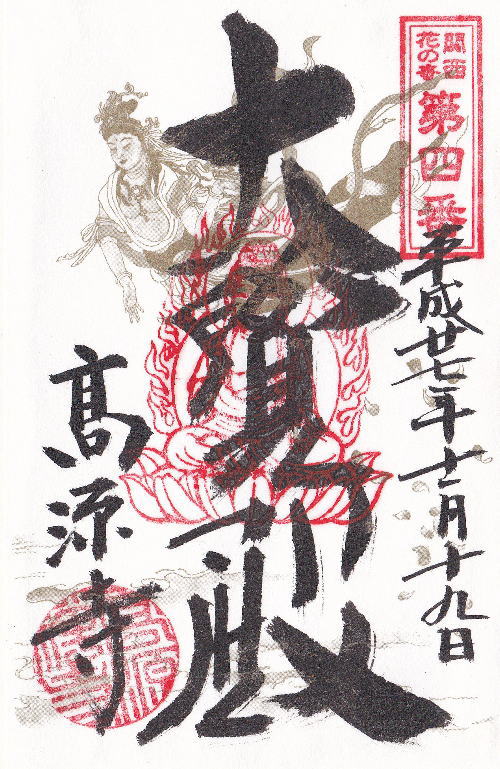 関西
花の寺
第四番
平成廿七年十一月十九日
大寶殿
髙源寺